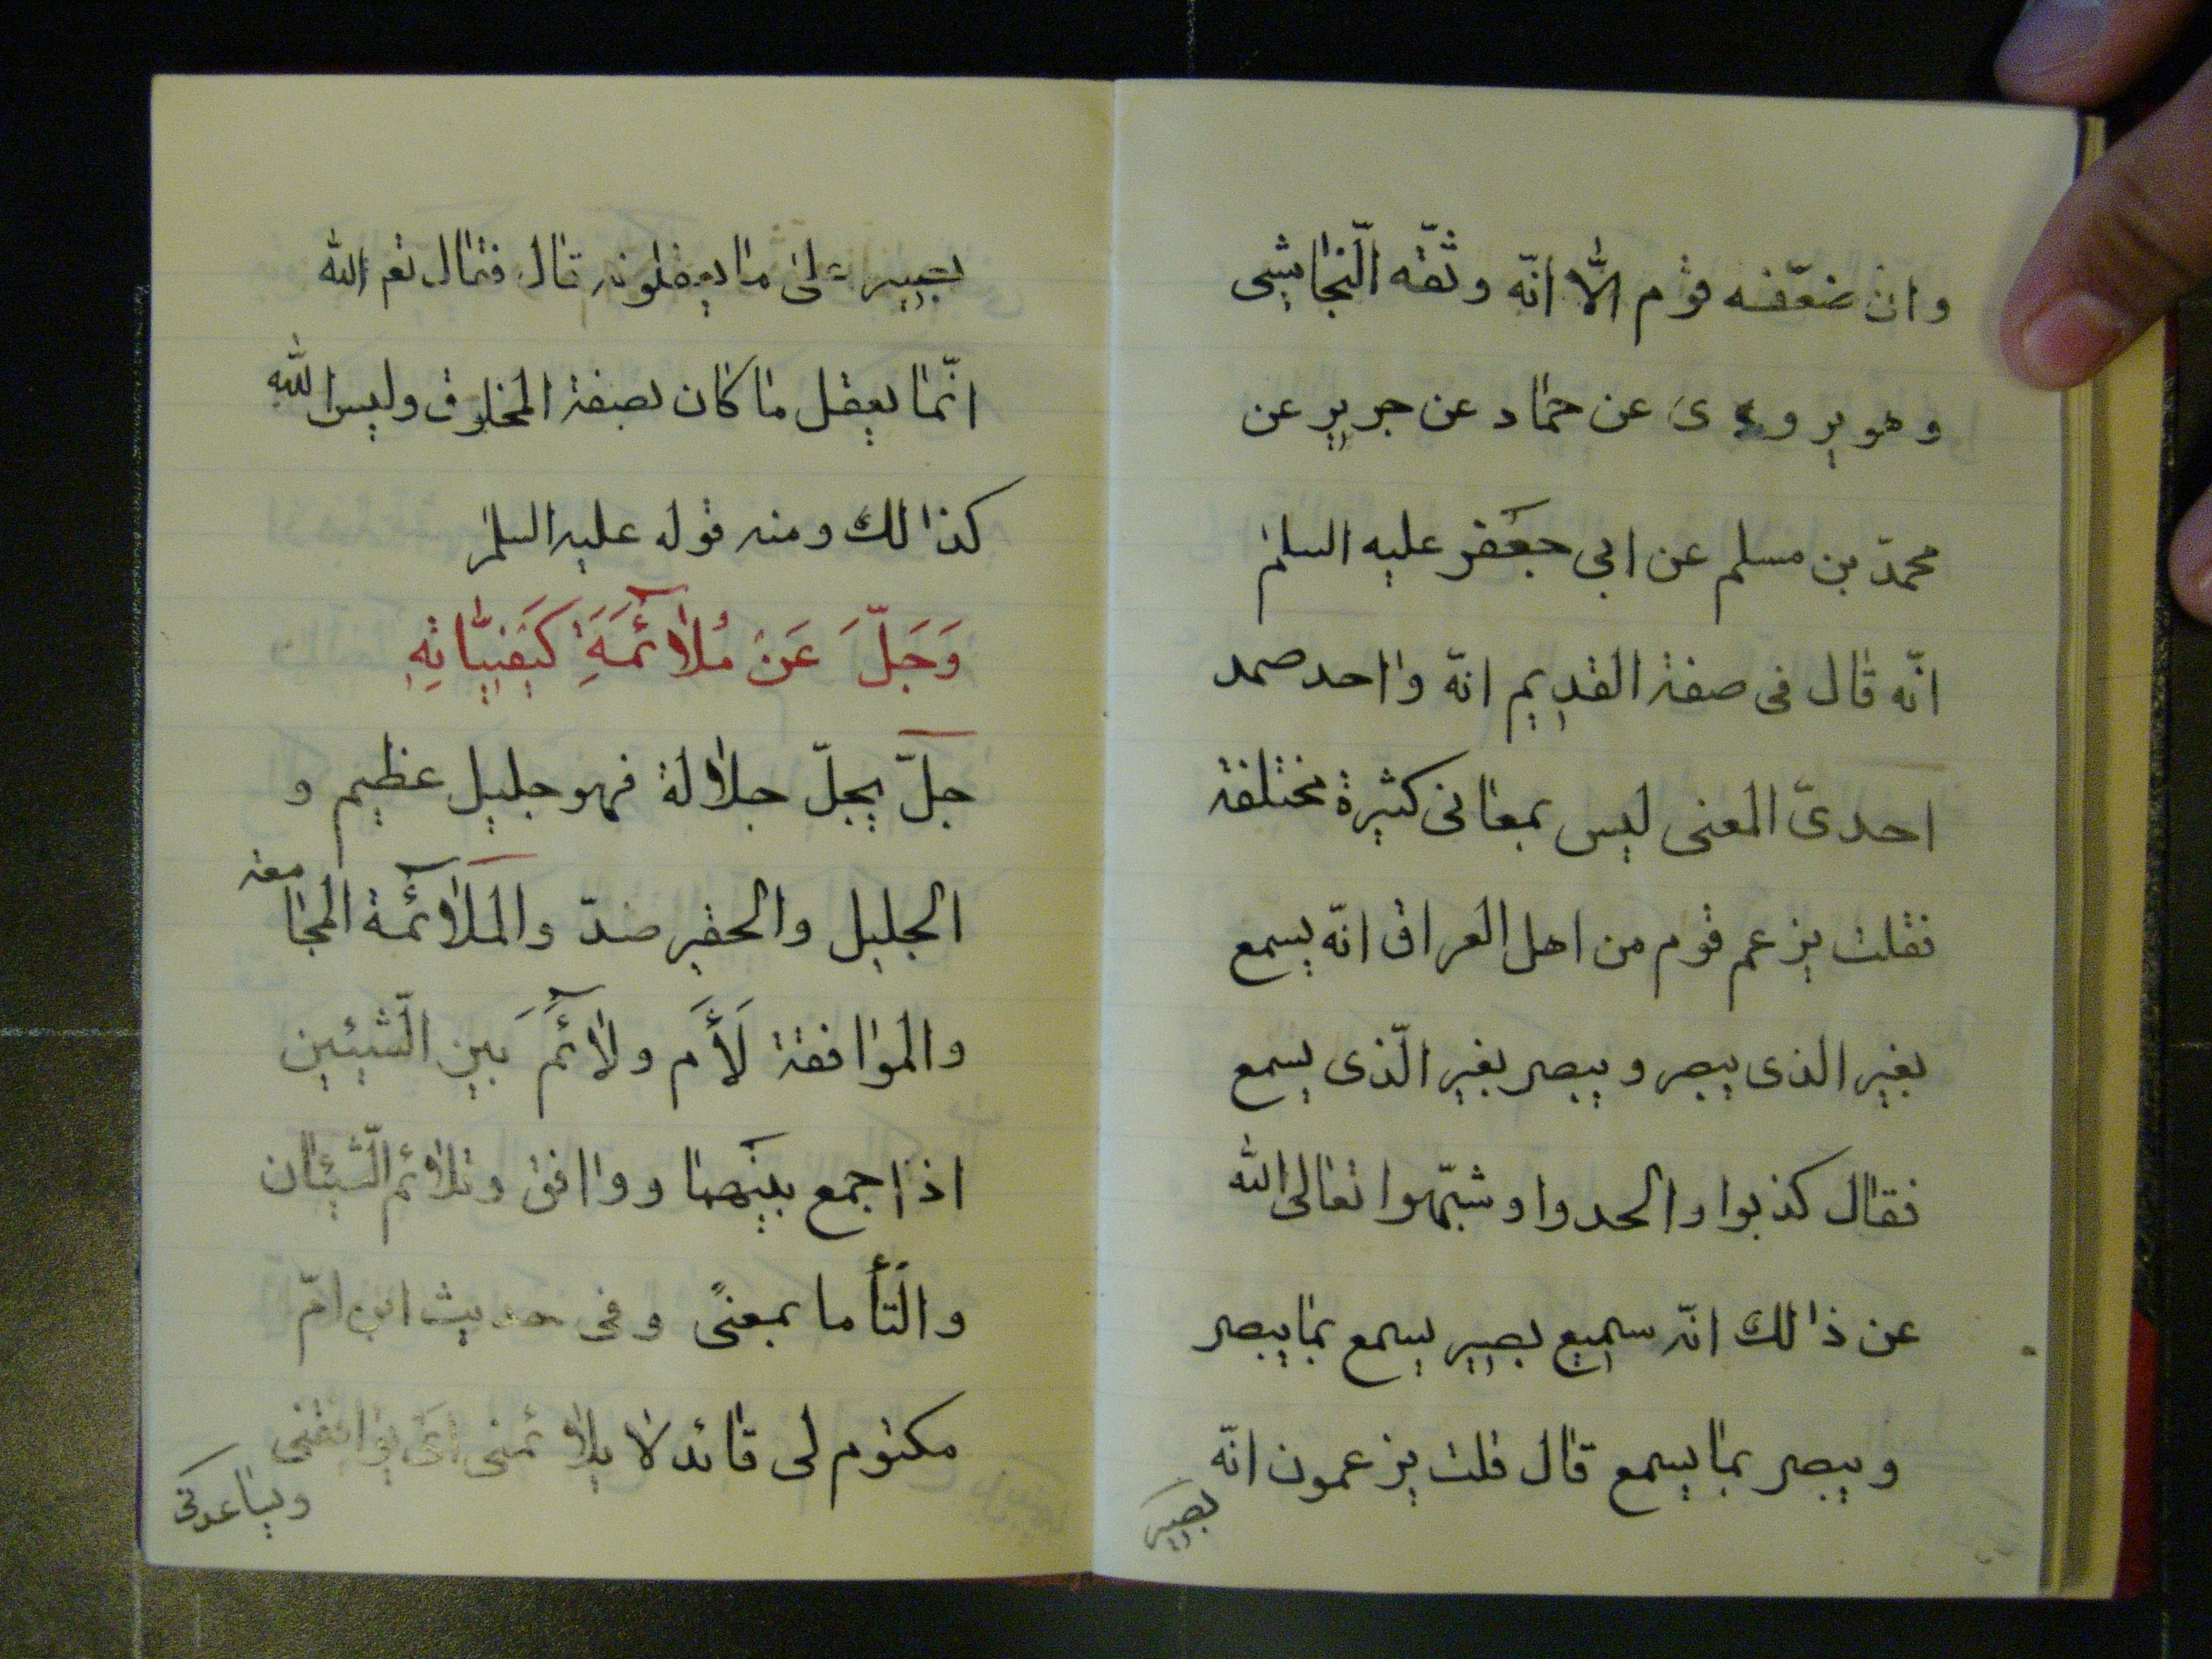 وان ضعّفه قوم الّا انّه وثّقه النّجاشى
وهو يروى عن حماد عن حريز عن
محمّد بن مسلم عن ابى جعفر عليه السلم
انّه قال فى صفة القديم انّه واحد صمد
احدىّ المعنى ليس بمعانى كثيرة مختلفة
فقلت يزعم قوم من اهل العراق انّه يسمع
بغير الذى يبصر ويبصر بغير الّذى يسمع
فقال كذبوا والحدوا وشبّهوا تعالى الله
عن ذالك انّه سميع بصير يسمع بما يبصر
ويبصر بما يسمع قال قلت يزعمون انّه
بصير
بصير على ما يعقلونه قال فقال تعالى الله
انّما يعقل ما كان بصفة المخلوق وليس الله
كذالك ومنه قوله عليه السلم
وَجَلَّ عَنْ مُلَائَمَةِ كَيْفِيَّاتِهِ
جلّ يجلّ جلالة فهو جليل عظيم و
الجليل والحقير ضدّ والملائمة المجامعة
والموافقة لَأَمَ ولائَمَ بين الشّيئين
اذا جمع بينهما ووافق وتلائم الشّيئان
والتأما بمعنىً وفى حديث ابن امّ
مكتوم لى قائد لا يلائمنى اى يوافقنى
ويساعدنى